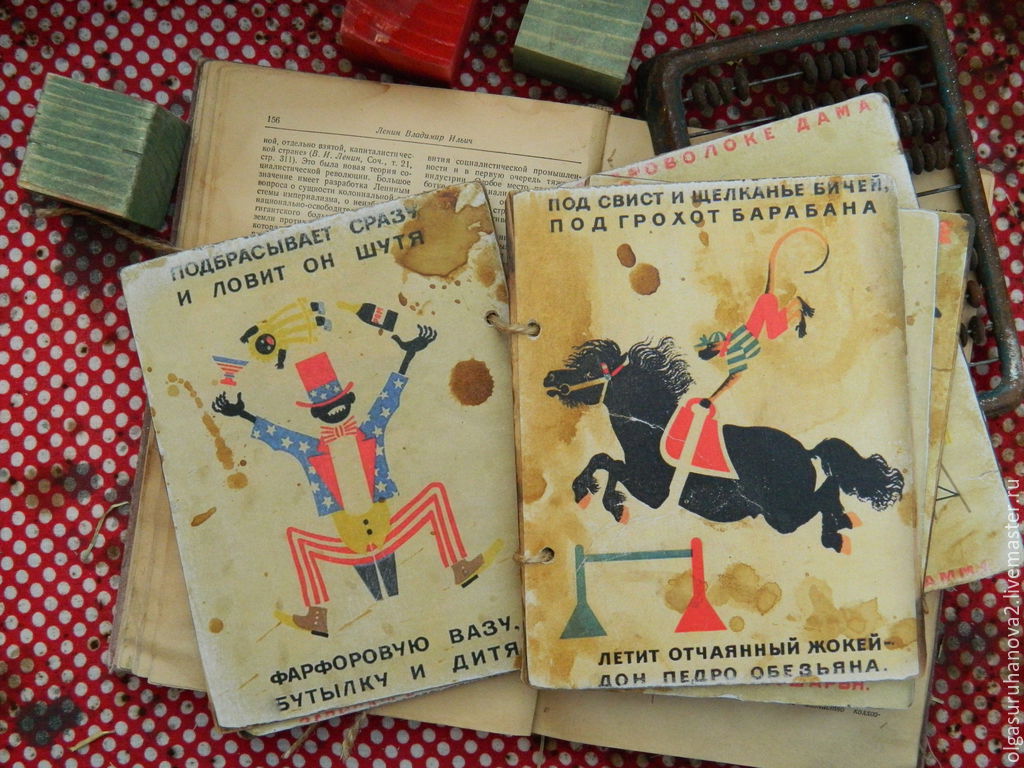 156
Ленин Владимир Ильич
ной, отдельно взятой, капиталистичес-
кой стране» (В. И. Ленин, Соч., т. 21,
стр. 311). Это была новая теория со-
циалистической революции. Большое
значение имеет разработка Лениным
вопроса о сущности колониальной
стемы империализма, о
национально-освободительн
гигантского
земли
вития социалистической промышлен-
в первую очередь
индустрии
ПОДБРАСЫВАЕТ СРАЗУ
И ЛОВИТ ОН ШУТЯ
ФАРФОРОВУЮ ВАЗУ,
БУТЫЛКУ И ДИТЯ
РОВОЛОКЕ ДАМА
ПОД СВИСТ И ЩЕЛКАНЬЕ БИЧЕЙ,
ПОД ГРОХОТ БАРАБАНА
ЛЕТИТ ОТЧАЯННЫЙ ЖОКЕЙ—
ДОН ПЕДРО ОБЕЗЬЯНА.
olgasuruhanova2.livemaster.ru